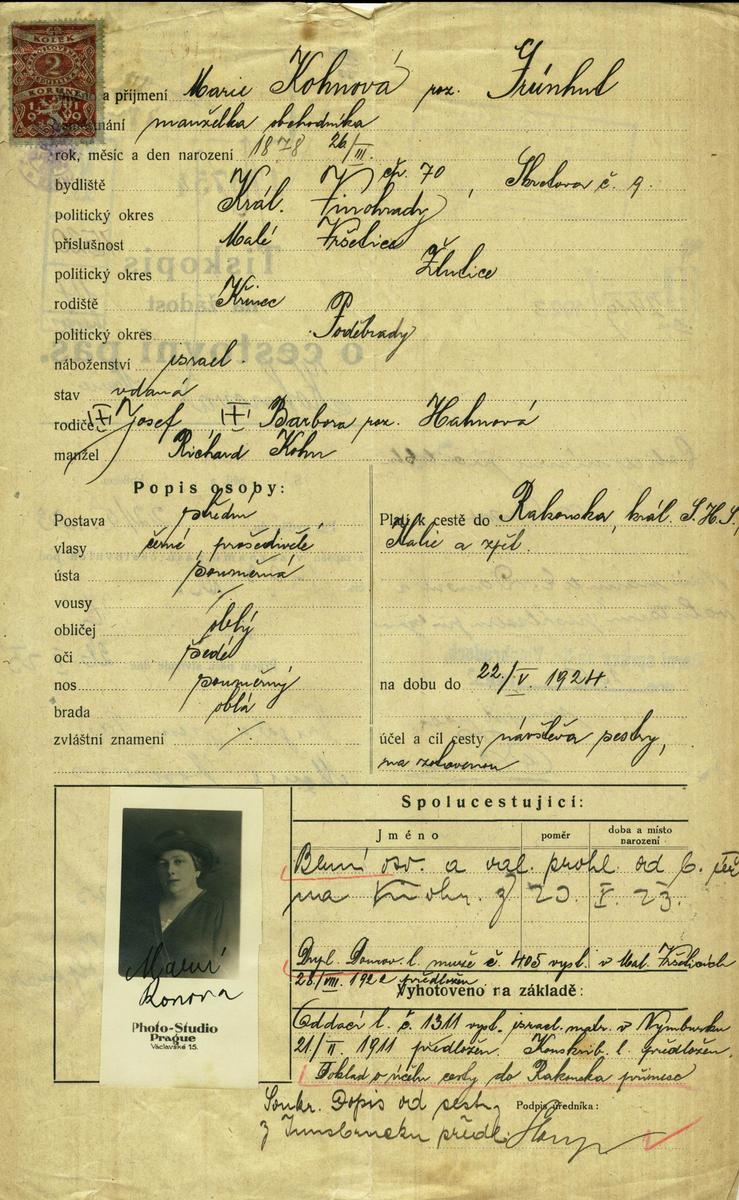 KOLEK
2
KORUNY
1919
a příjmení Marie Kohnová roz. Grünhut
manželka obchodníka
rok, měsíc a den narození 1878 26/III.
bydliště čp. 70, Škretova č. 9.
politický okres Král. Vinohrady
příslušnost Malé
politický okres Žlutice
rodiště Křinec
politický okres Poděbrady
náboženství israel.
stav vdaná
rodiče Josef Barbora roz. Hahnová
manžel Richard Kohn
Popis osoby:
Postava střední
vlasy černé, prošedivělé
ústa souměrná
vousy /.
obličej oblý
oči šedé
nos souměrný
brada oblá
zvláštní znamení /.
Platí k cestě do Rakouska, král. S.H.S.,
Italie a zpět.
na dobu do 22./V. 1924
účel a cíl cesty návštěva sestry,
na zotavenou
Spolucestující:
Jméno
poměr
doba a místo
narození
Berní osv. a val. prohl. od b.
na Vinohr. z 23.
Dupl. Domov. l. muže č. 405 vyst. v Mal.
28/VIII. 1922 předložen.
Vyhotoveno na základě:
Oddací l. č. 1311 vyst. israel. matr. v Nymburku
21/II. 1911 předložen. Konskrib. l. předložen.
Doklad o účelu cesty do Rakouska přinese
Soukr. Dopis od sestry
z Innsbrucku předl.
Podpis úředníka:
Marie
Photo-Studio
Prague
Václavské 15.
Tiskopis
na žádost
o cestovní pas.